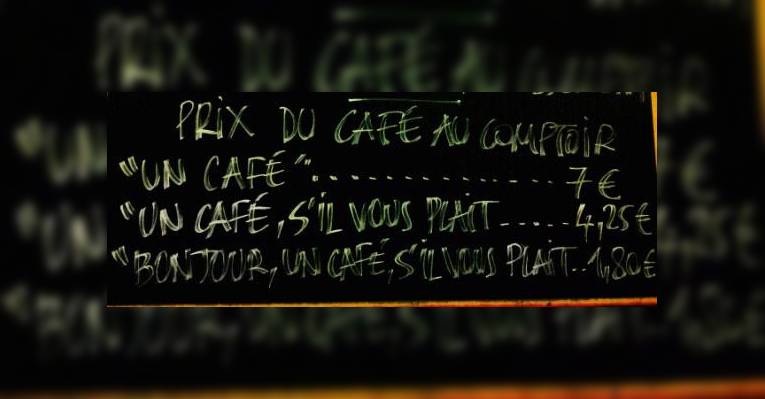 PRIX DU CAFÉ AU COMPTOIR
"UN CAFÉ"................7 €
"UN CAFÉ, S'IL VOUS PLAIT......4,25€
"BONJOUR, UN CAFÉ, S'IL VOUS PLAIT..1,80€